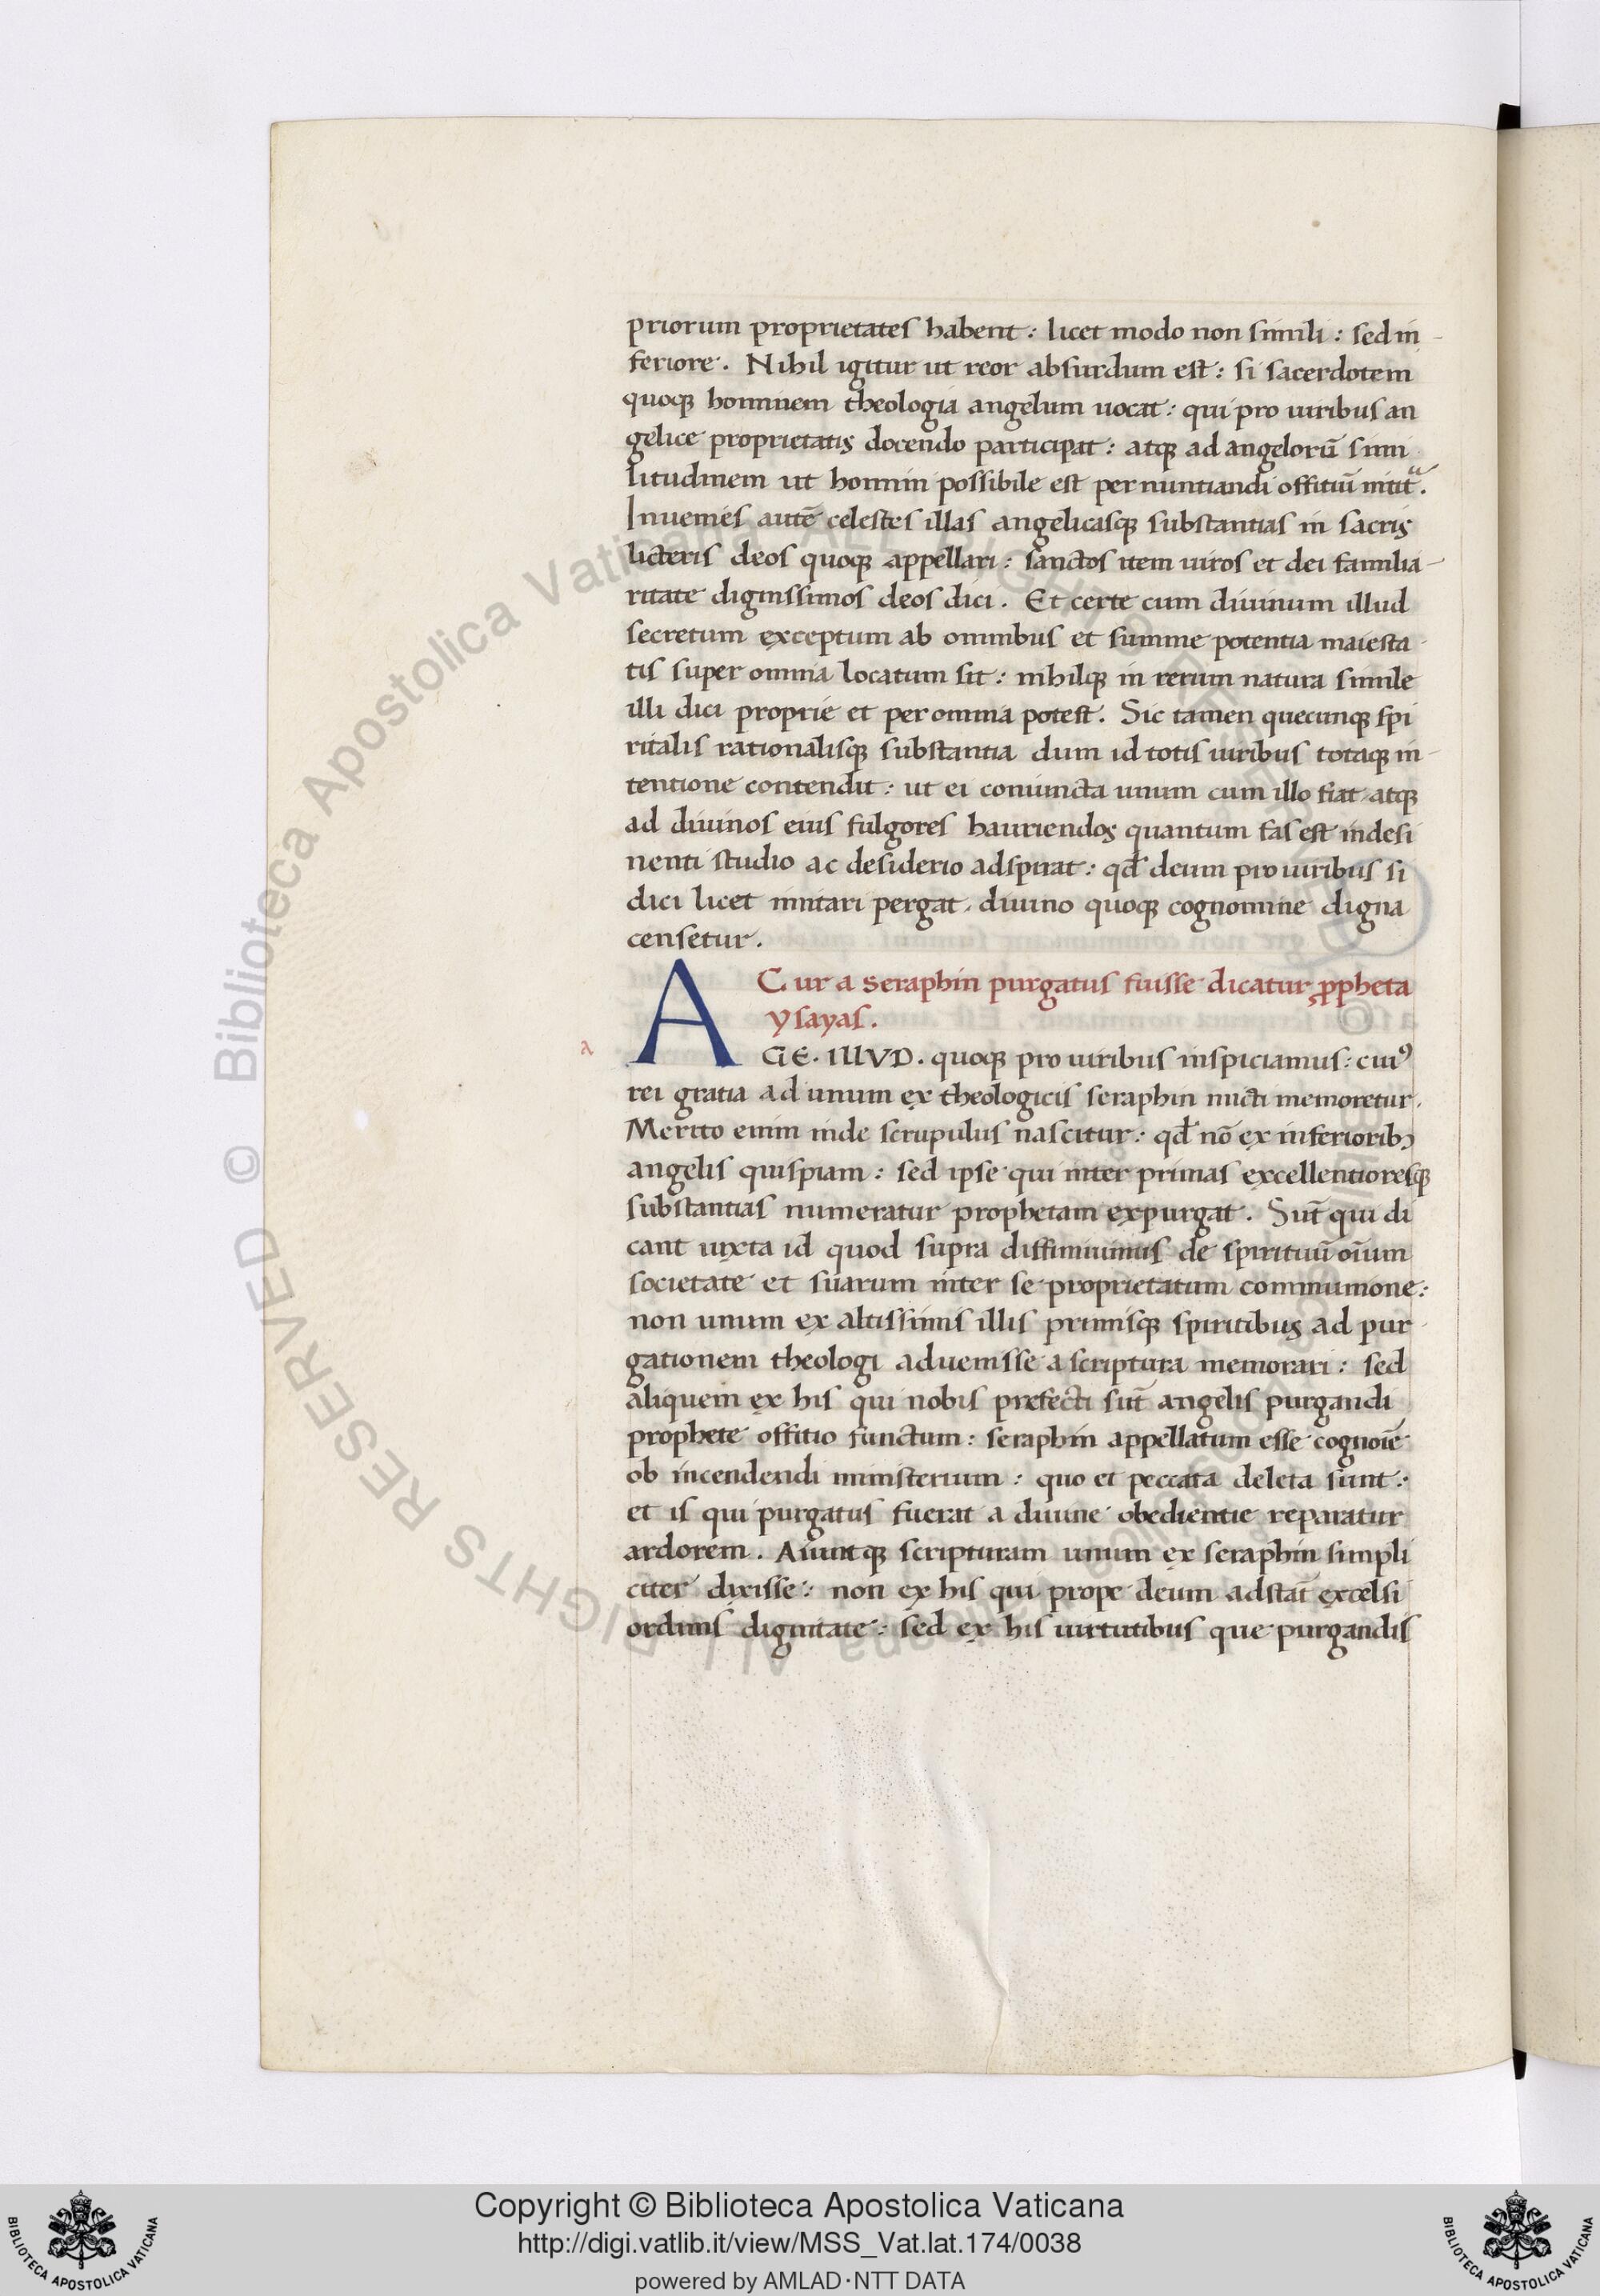 priorum proprietates habent : licet modo non simili : sed in-
feriore . Nihil igitur ut reor absurdum est : si sacerdotem
quoqꝫ hominem theologia angelum uocat : qui pro uiribus an
gelice proprietatis docendo participat : atqꝫ ad angelorū simi
litudinem ut homini possibile est per nuntiandi offitiū initit͛ᵃ .
Inuenies autē celestes illas angelicasqꝫ substantias in sacris
licteris deos quoqꝫ appellari : sanctos item uiros et dei familia-
ritate dignissimos deos dici . Et certe cum diuinum illud
secretum exceptum ab omnibus et summe potentia maiesta-
tis super omnia locatum sit : nihilqꝫ in rerum natura simile
illi dici proprie et per omnia potest . Sic tamen quecunqꝫ spi
ritalis rationalisqꝫ substantia dum id totis uiribus totaqꝫ in-
tentione contendit : ut ei coniuncta unum cum illo fiat . atqꝫ
ad diuinos eius fulgores hauriendos quantum fas est indesi
nenti studio ac desiderio adspirat : qđ deum pro uiribus si
dici licet imitari pergat . diuino quoqꝫ cognomine digna
censetur .
Cur a seraphin purgatus fuisse dicatur ꝓpheta
ysayas .
a
AGE . ILLVD . quoqꝫ pro uiribus inspiciamus : cuiꝰ
rei gratia ad unum ex theologicis seraphin micti memoretur .
Merito enim inde scrupulus nascitur : qđ nō ex inferioribꝫ
angelis quispiam : sed ipse qui inter primas excellentioresqꝫ
substantias numeratur prophetam expurgat . Sūt qui di
cant iuxta id quod supra diffiniuimus de spirituū oīum
societate et suarum inter se proprietatum communione :
non unum ex altissimis illis primisqꝫ spiritibus ad pur-
gationem theologi aduenisse a scriptura memorari : sed
aliquem ex his qui nobis prefecti sūt angelis purgandi
prophete offitio functum : seraphin appellatum esse cognoīe
ob incendendi ministerium : quo et peccata deleta sunt :
et is qui purgatus fuerat a diuine obedientie reparatur
ardorem . Aiuntqꝫ scripturam unum ex seraphin simpli
citer dixisse : non ex his qui prope deum adstāt excelsi
ordinis dignitate : sed ex his uirtutibus que purgandis
© Biblioteca Apostolica Vaticana ALL RIGHTS RESERVED
© Biblioteca Apostolica Vaticana ALL RIGHTS RESERVED
Copyright © Biblioteca Apostolica Vaticana
http://digi.vatlib.it/view/MSS_Vat.lat.174/0038
powered by AMLAD·NTT DATA
BIBLIOTECA APOSTOLICA VATICANA
BIBLIOTECA APOSTOLICA VATICANA